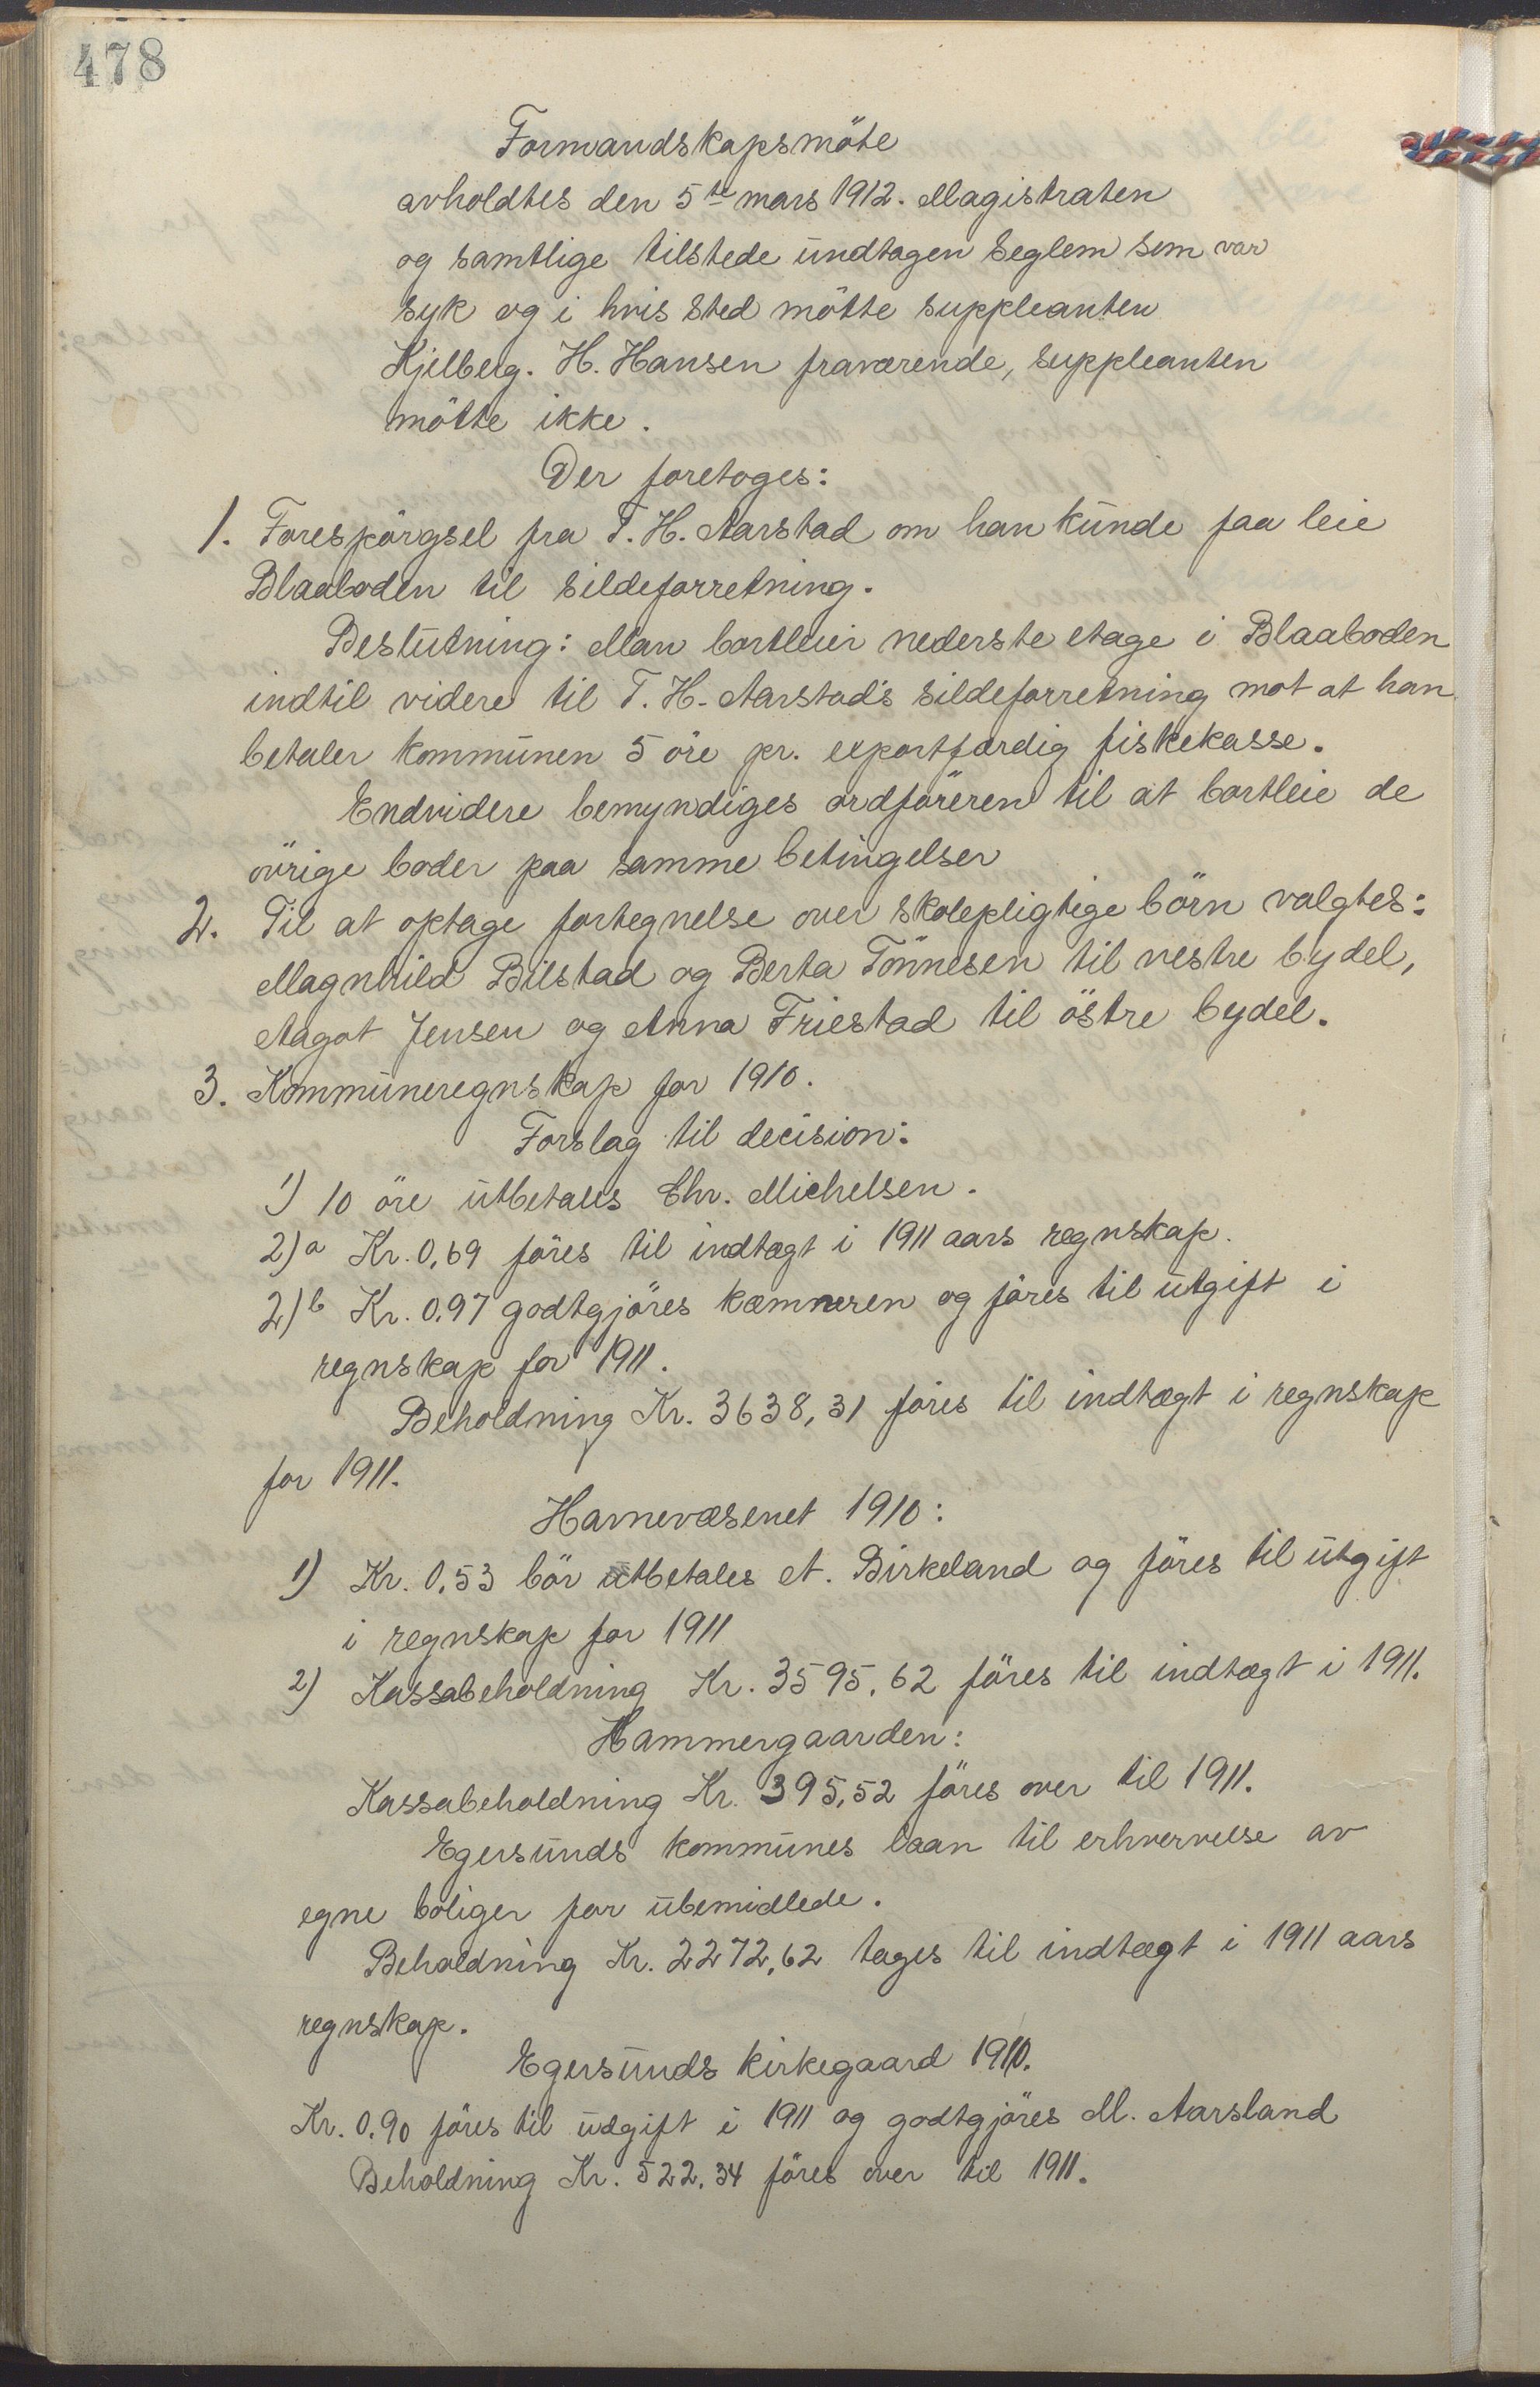 478
Formandskapsmöte
avholdtes den 5te mars 1912. Magistraten
og samtlige tilstede undtagen Seglem som var
syk og i hvis sted mötte suppleanten
Kjelberg. H. Hansen fraværende, suppleanten
mötte ikke.
Der foretoges:
1. Forespörgsel fra T. H. Aarstad om han kunde faa leie
Blaaboden til sildeforretning.
Beslutning: Man bortleier nederste etage i Blaaboden
indtil videre til T. H. Aarstad's sildeforretning mot at han
betaler kommunen 5 öre pr. exportfærdig fiskekasse.
Endvidere bemyndiges ordföreren til at bortleie de
övrige boder paa samme betingelser
2. Til at optage fortegnelse over skolepligtige börn valgtes:
Magnhild Bilstad og Berta Tönnesen til vestre bydel,
Aagot Jensen og Anna Friestad til östre bydel.
3. Kommuneregnskap for 1910.
Forslag til decision:
1) 10 öre utbetales Chr. Michelsen.
2)a Kr. 0,69 föres til indtægt i 1911 aars regnskap.
2)b Kr. 0,97 godtgjöres kæmneren og föres til utgift i
regnskap for 1911.
Beholdning Kr. 3638,31 föres til indtægt i regnskap
for 1911.
Havnevæsenet 1910:
1) Kr. 0,53 bör utbetales A. Birkeland og föres til utgift
i regnskap for 1911
2) Kassabeholdning Kr. 3595,62 föres til indtægt i 1911.
Hammergaarden:
Kassabeholdning Kr. 395,52 föres over til 1911.
Egersunds kommunes laan til erhvervelse av
egne boliger for ubemidlede.
Beholdning Kr. 2272,62 tages til indtægt i 1911 aars
regnskap.
Egersunds kirkegaard 1910.
Kr. 0.90 föres til udgift i 1911 og godtgjöres M. Aarsland
Beholdning Kr. 522,34 föres over til 1911.